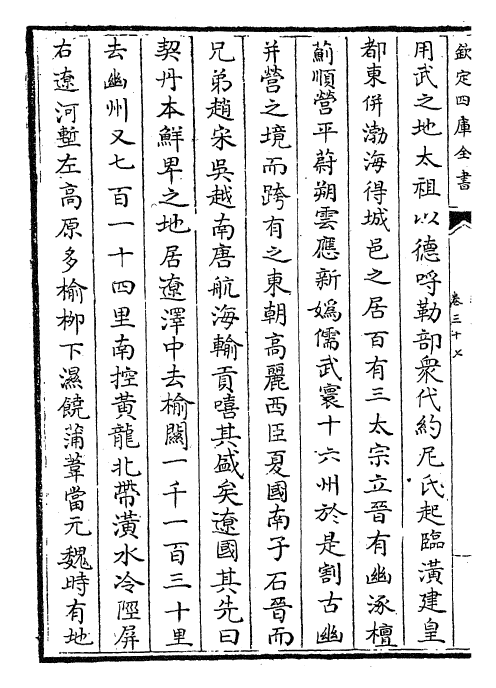 欽定四庫全書
卷三十七
用武之地太祖以德哷勒部衆代約尼氏起臨潢建皇
都東併渤海得城邑之居百有三太宗立晉有幽涿檀
薊順營平蔚朔雲應新嬀儒武寰十六州於是割古幽
并營之境而跨有之東朝高麗西臣夏國南子石晉而
兄弟趙宋吳越南唐航海輸貢嘻其盛矣遼國其先曰
契丹本鮮卑之地居遼澤中去榆關一千一百三十里
去幽州又七百一十四里南控黃龍北帶潢水冷陘屏
右遼河塹左高原多榆柳下濕饒蒲葦當元魏時有地